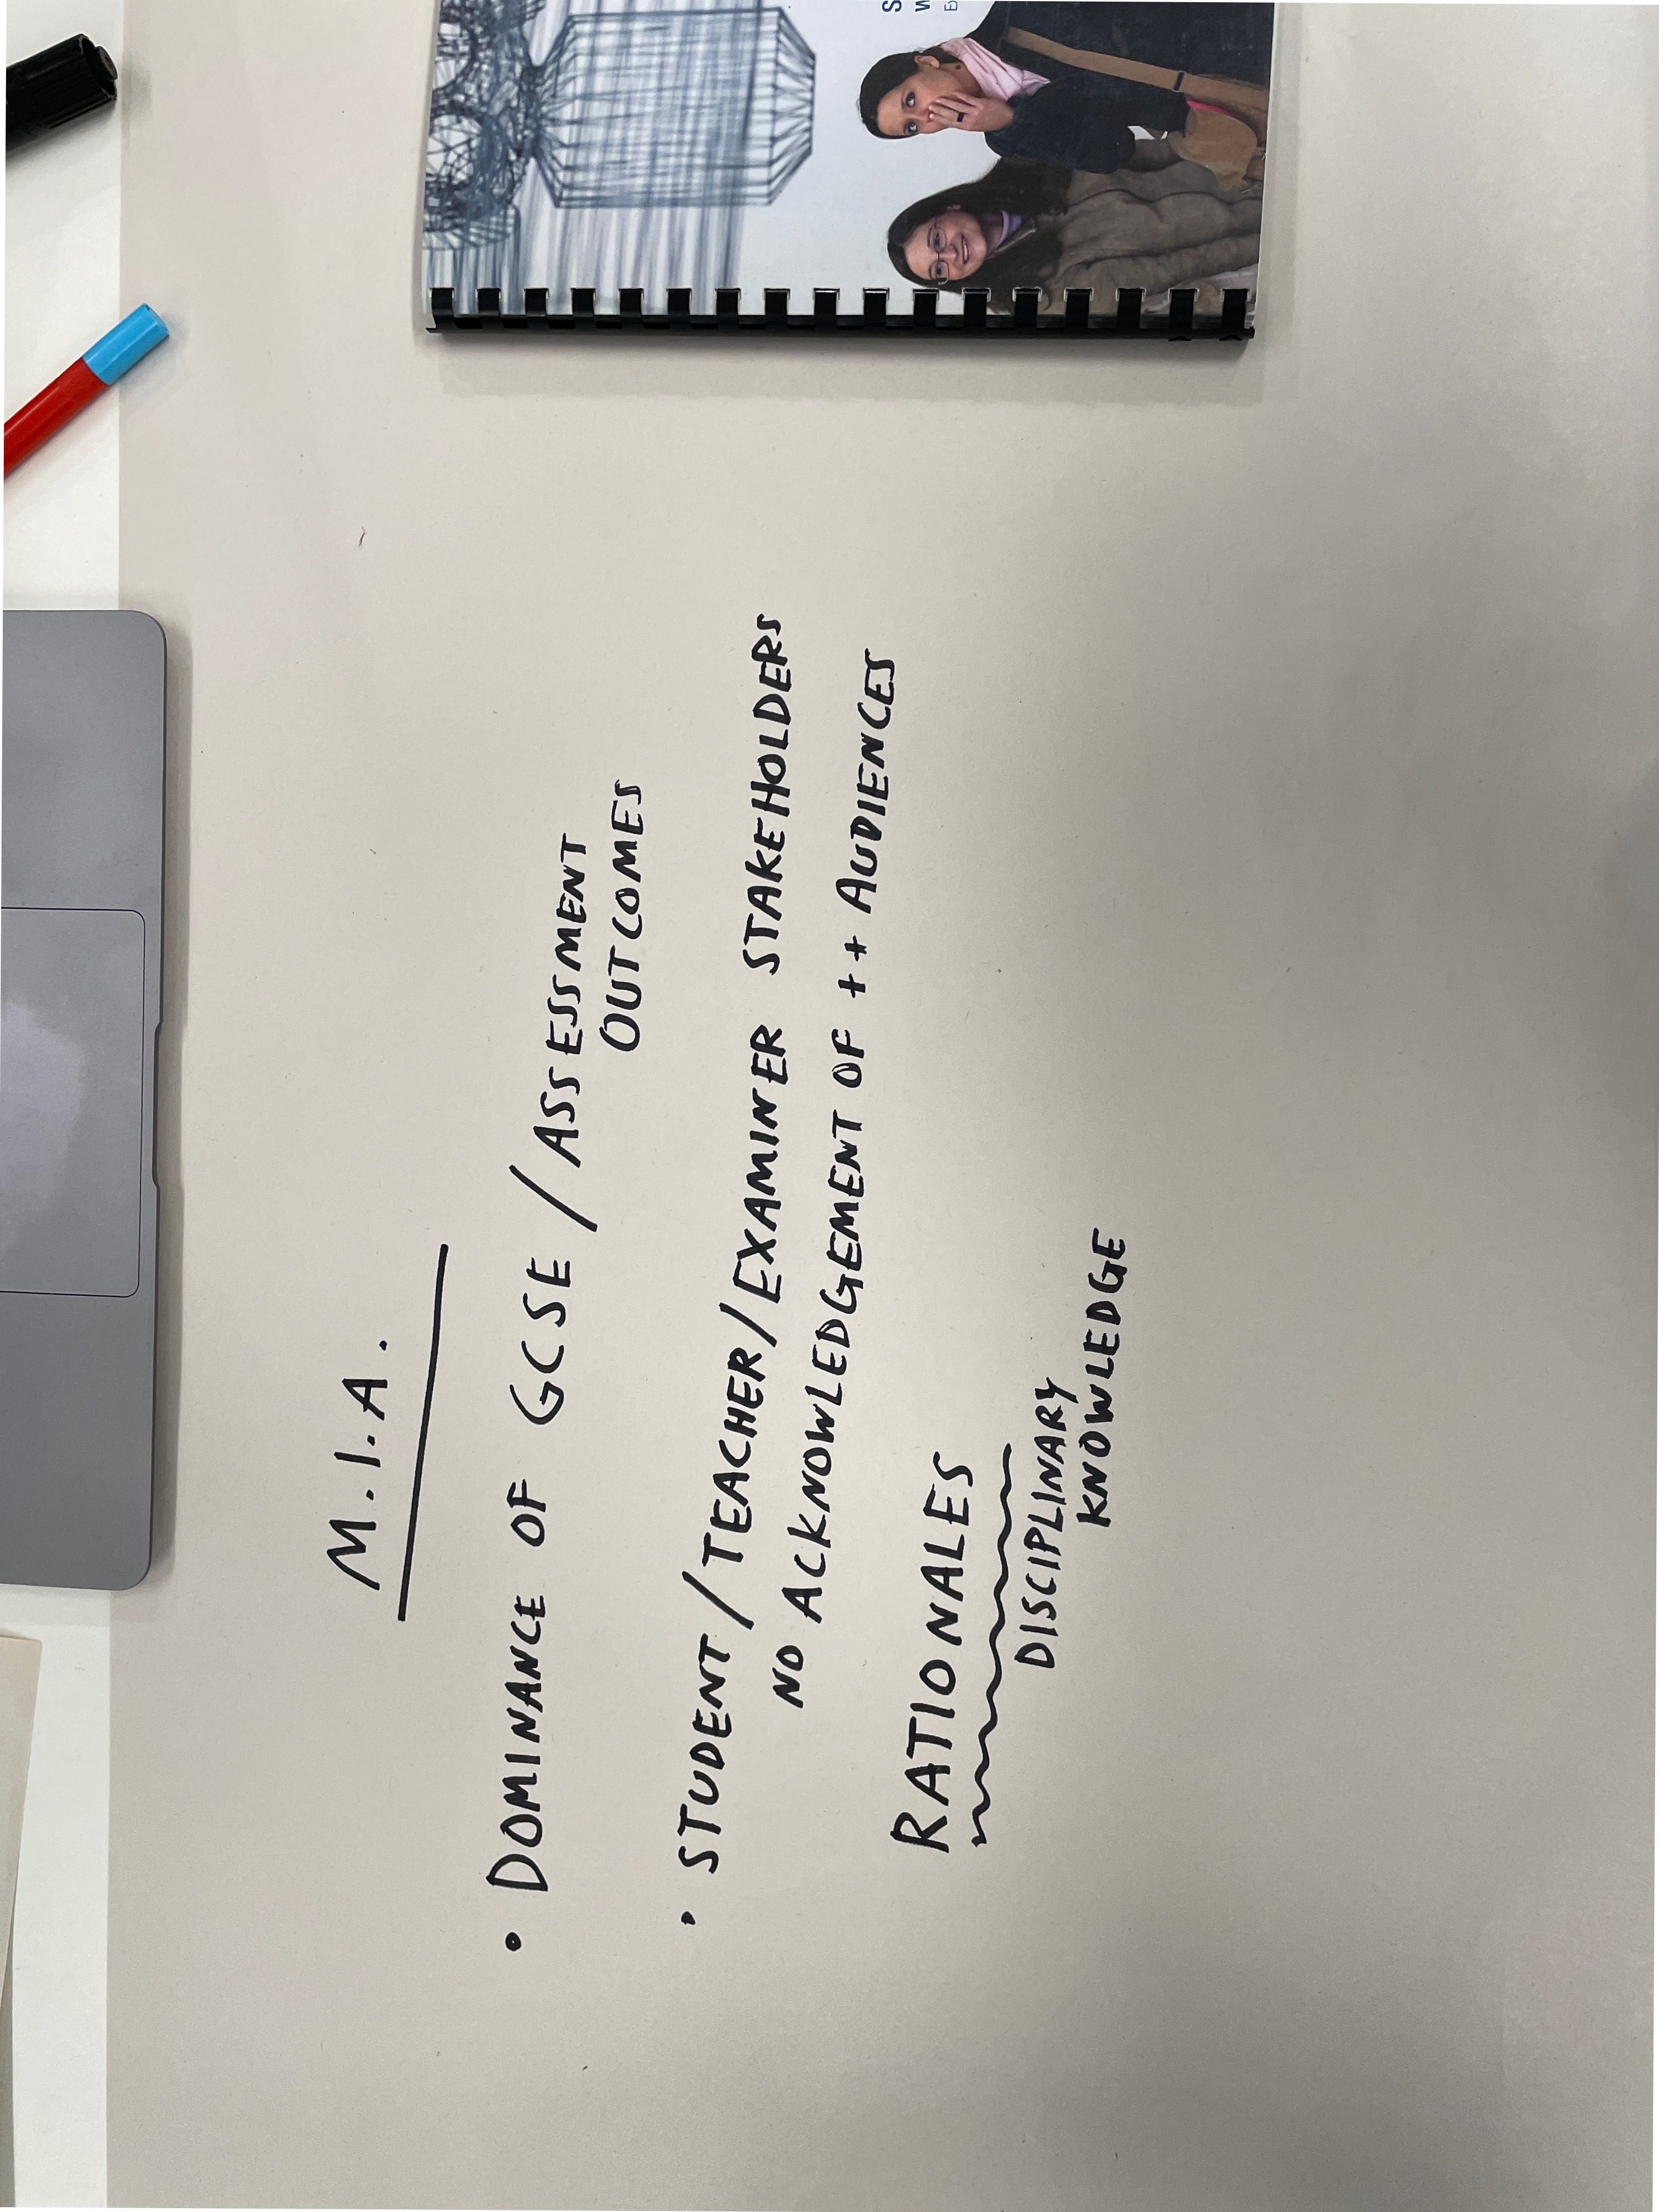 M.I.A.
• DOMINANCE OF GCSE / ASSESSMENT
OUTCOMES
• STUDENT / TEACHER / EXAMINER STAKEHOLDERS
NO ACKNOWLEDGEMENT OF ++ AUDIENCES
RATIONALES
DISCIPLINARY
KNOWLEDGE